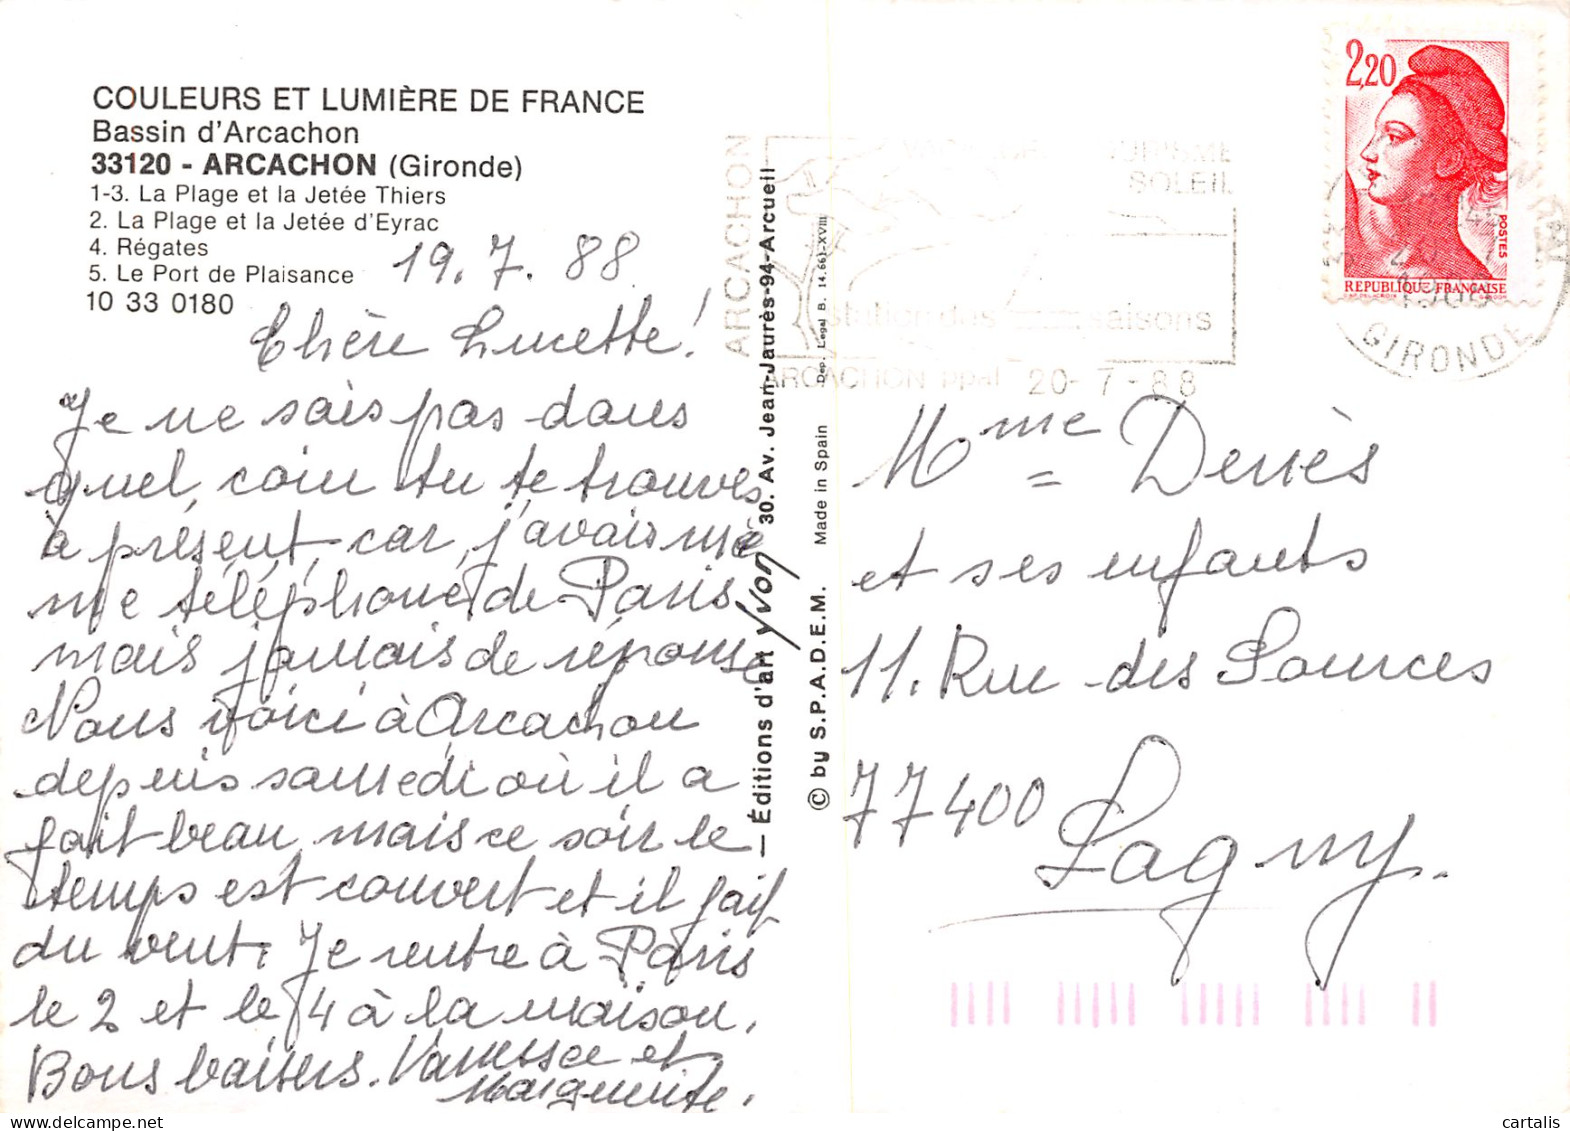 COULEURS ET LUMIÈRE DE FRANCE
Bassin d'Arcachon
33120 - ARCACHON (Gironde)
1-3. La Plage et la Jetée Thiers
2. La Plage et la Jetée d'Eyrac
4. Régates
5. Le Port de Plaisance
10 33 0180
19.7.88
Chère Lucette!
Je ne sais pas dans
quel coin tu te trouves
à présent, car j'avais mê
me téléphoné de Paris
mais jamais de réponse
Nous voici à Arcachon
depuis samedi où il a
fait beau, mais ce soir le
temps est couvert et il fait
du vent. Je rentre à Paris
le 2 et le 4 à la maison.
Bons baisers. Vanessa et
Marguerite.
— Éditions d'art Yvon 30. Av. Jean-Jaurès-94-Arcueil
© by S.P.A.D.E.M. Made in Spain Dep. Legal B. 14.661-XVIII
ARCACHON
TOURISME
SOLEIL
station des saisons
ARCACHON ppal 20-7-88
2,20
POSTES
REPUBLIQUE FRANÇAISE
GIRONDE
Mme Denès
et ses enfants
11. Rue des Sources
77400
Lagny.
cartalis